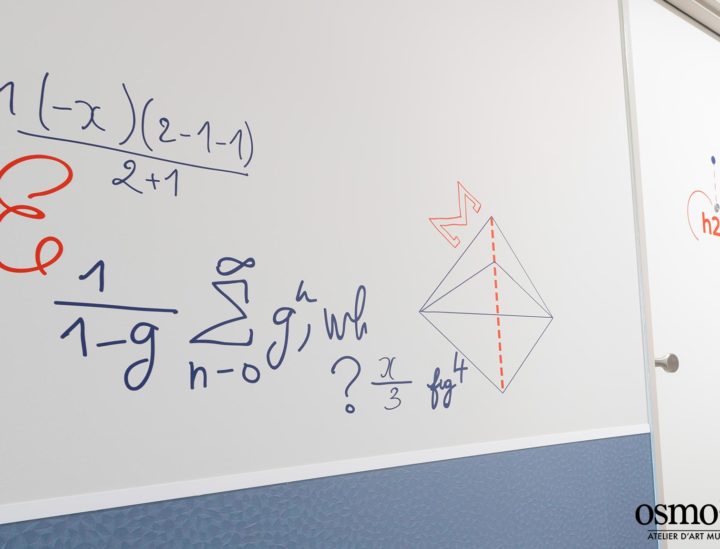 1(-x)(2-1-1)
2+1
1
1-g
∞
Σ
n-0
g^n, wh
Σ
? x/3 fig 4
h2
osmo
ATELIER D'ART MU